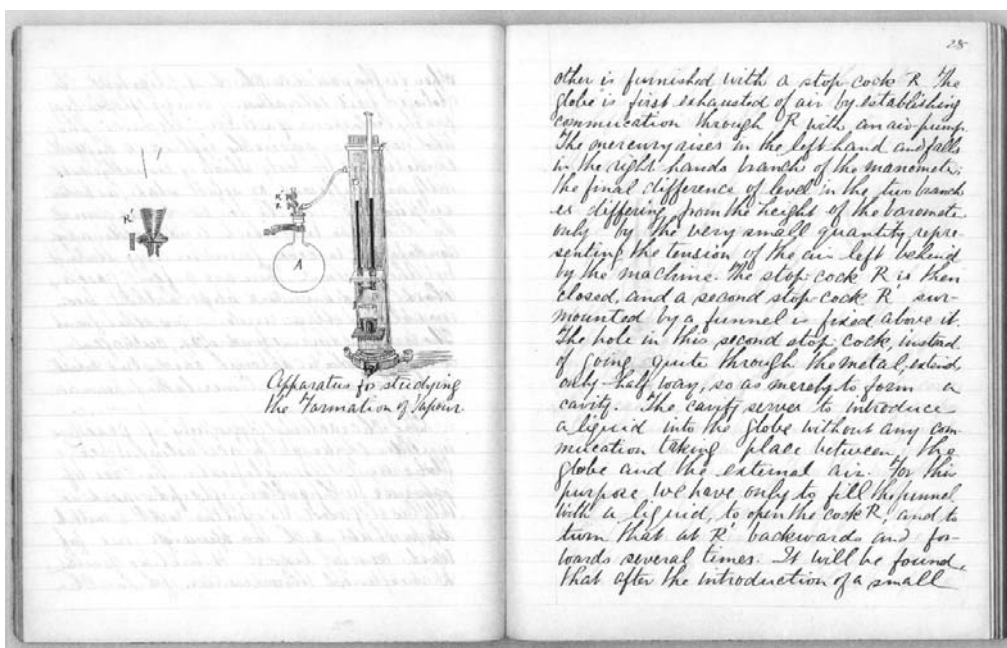 R'
R'
R
A
Apparatus for studying
the Formation of Vapour
other is furnished with a stop-cock R. The
globe is first exhausted of air by establishing
commucation through R with, an air-pump.
The mercury rises in the left hand and falls
in the right hands branch of the manometer;
the final difference of level in the two branch
es differing from the height of the barometer
only by the very small quantity repre-
senting the tension of the air left behind
by the machine. The stop-cock R is then
closed, and a second stop-cock R' sur-
mounted by a funnel is fixed above it.
The hole in this second stop cock, instead
of going quite through the metal, extend
only half way, so as merely to form a
cavity. The cavity serves to introduce
a liquid into the globe without any com-
mucation taking place between, the
globe and the external air. For this
purpose we have only to fill the funnel
with a liquid, to open the cock R, and to
turn that at R' backwards and for-
wards several times. It will be found,
that after the introduction of a small